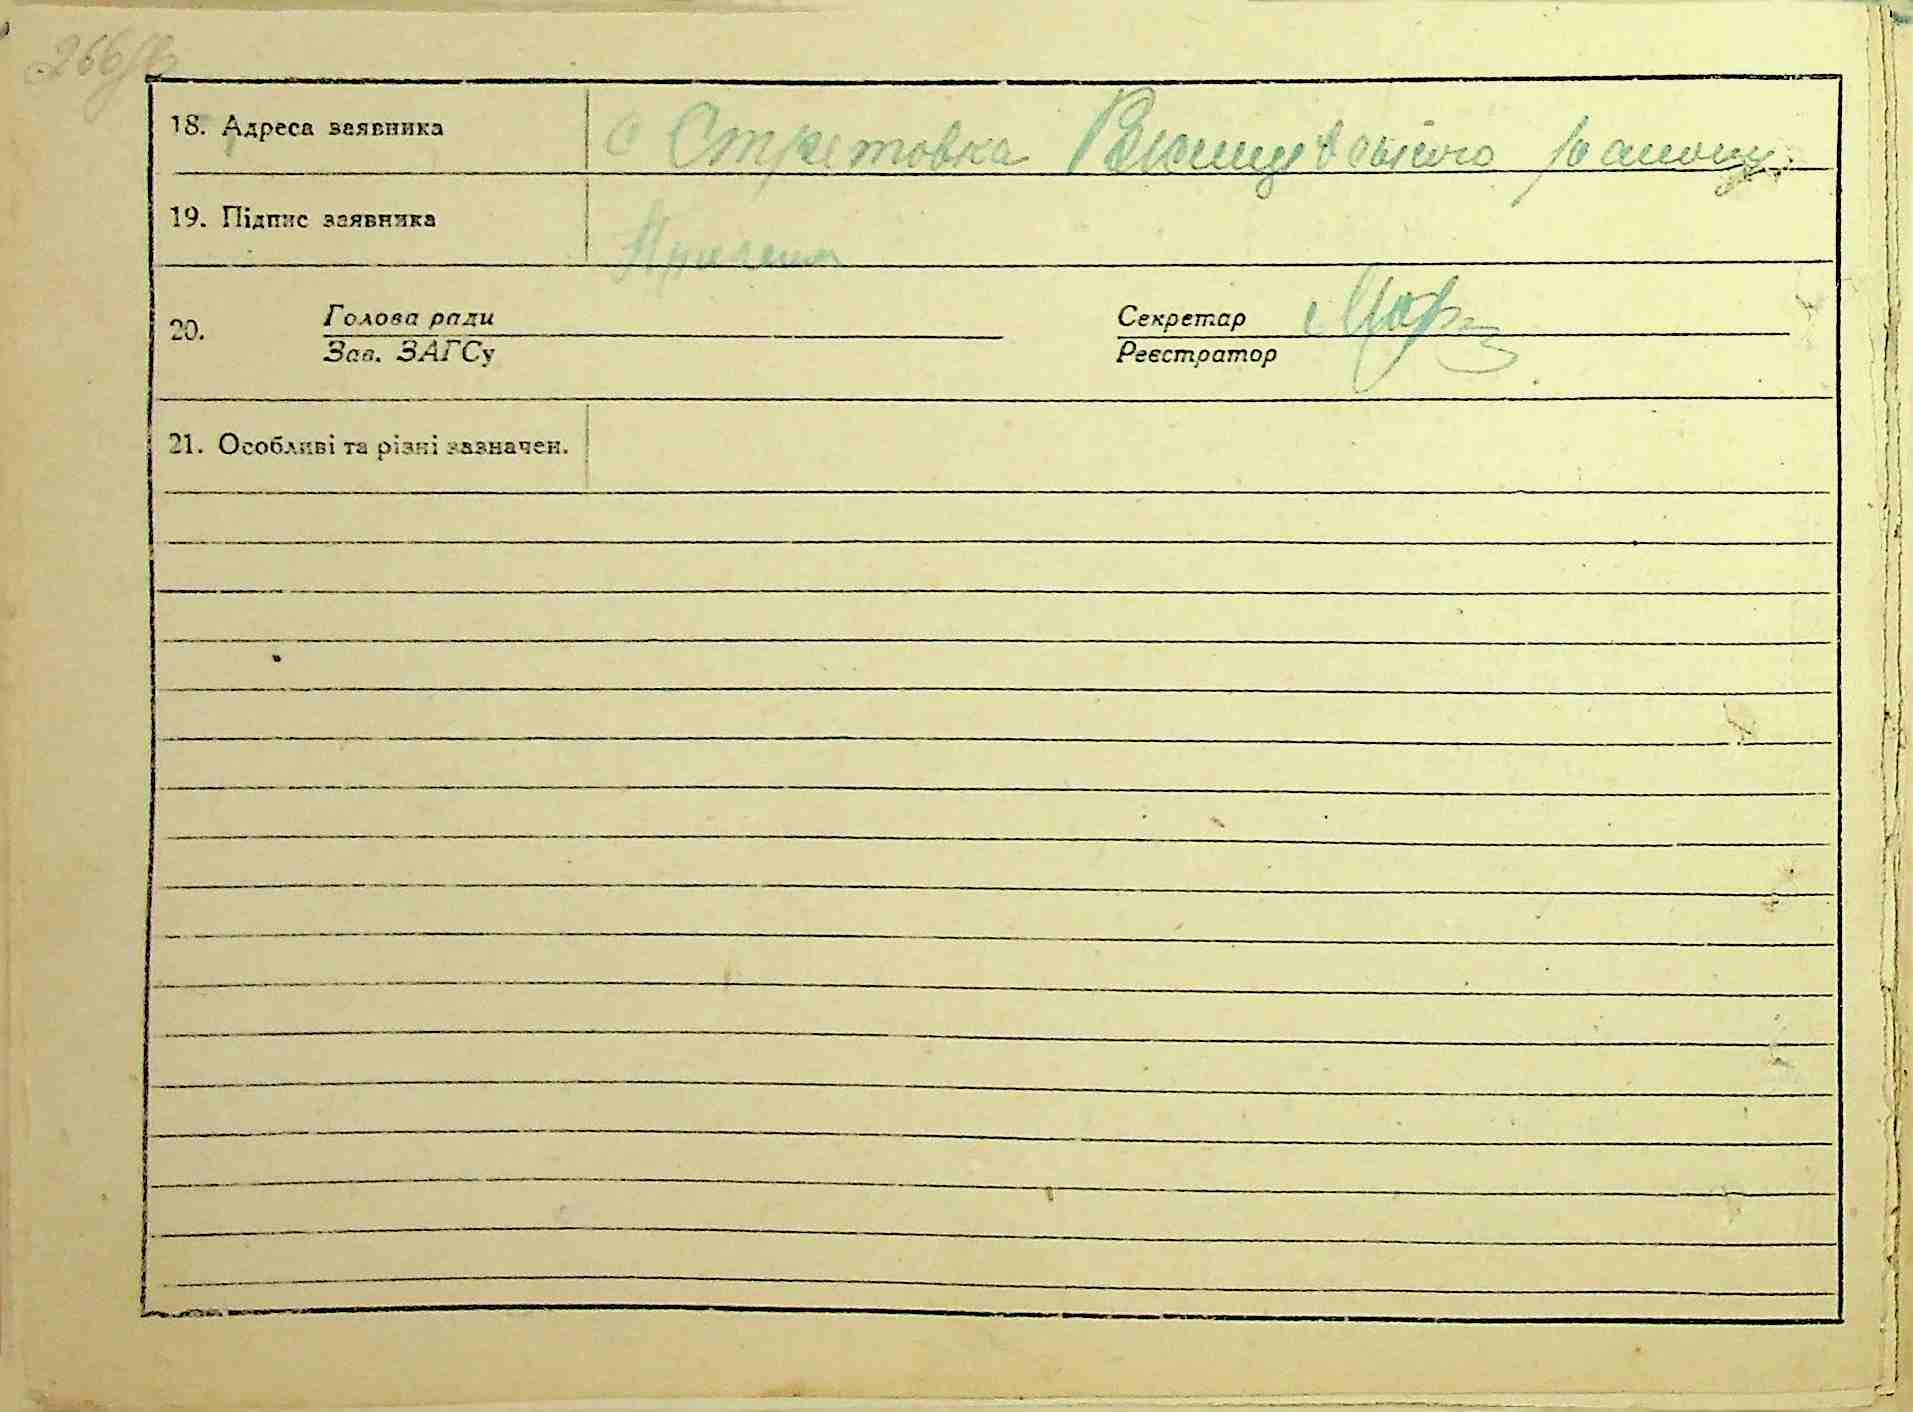 18. Адреса заявника с Стретовка району
19. Підпис заявника
20. Голова ради Секретар
Зав. ЗАГСу Реєстратор
21. Особливі та різні зазначен.